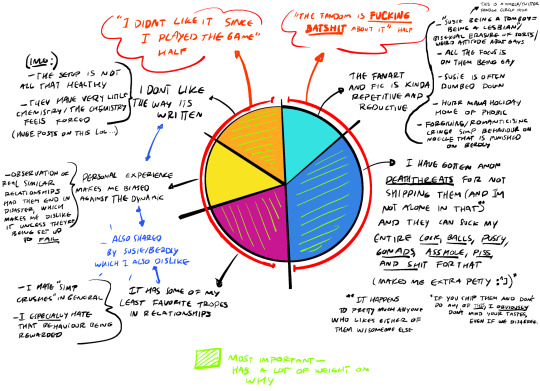 "I DIDNT LIKE IT SINCE
I PLAYED THE GAME"
HALF
"THE FANDOM IS FUCKING
BATSHIT ABOUT IT" HALF
THIS IS A
CIRCLE
- "SUSIE BEING A TOMBOY=
BEING A LESBIAN"/
BISEXUAL ERASURE OF SORTS/
WEIRD ATTITUDE ABOUT GAYS
- ALL THE FOCUS IS
ON THEM BEING GAY
- SUSIE IS OFTEN
DUMBED DOWN
- HOHR MAMA HOLIDAY
HOME OF PHOBIC
- FORGIVING/ROMANTICISING
CRINGE SIMP BEHAVIOUR ON
NOELLE THAT IS PUNISHED
ON BERDLY
(IMO:)
- THE SETUP IS NOT
ALL THAT HEALTHY
- THEY HAVE VERY LITTLE
CHEMISTRY/THE CHEMISTRY
FEELS FORCED
(HUGE POSTS ON THIS LOL...)
I DONT LIKE
THE WAY ITS
WRITTEN
THE FANART
AND FIC IS KINDA
REPETITIVE AND
REDUCTIVE
- OBSERVATION OF
REAL SIMILAR
RELATIONSHIPS
HAD THEM END IN
DISASTER, WHICH
MAKES ME DISLIKE
IT UNLESS THEYRE
BEING SET UP
TO FAIL
PERSONAL EXPERIENCE
MAKES ME BIASED
AGAINST THE DYNAMIC
ALSO SHARED
BY SUSIE/BERDLY
WHICH I ALSO DISLIKE
- I HATE "SIMP
CRUSHES" IN GENERAL
- I ESPECIALLY HATE
THAT BEHAVIOUR BEING
REWARDED
IT HAS SOME OF MY
LEAST FAVORITE TROPES
IN RELATIONSHIPS
I HAVE GOTTEN ANON
DEATHTHREATS FOR NOT
SHIPPING THEM (AND IM
NOT ALONE IN THAT)**
AND THEY CAN SUCK MY
ENTIRE COCK, BALLS, PUSSY,
GONADS, ASSHOLE, PISS,
AND SHIT FOR THAT
(MAKES ME EXTRA PETTY :^])*
** IT HAPPENS
TO PRETTY MUCH ANYONE
WHO LIKES EITHER OF
THEM W/SOMEONE ELSE
*IF YOU SHIP THEM AND DONT
DO ANY OF THIS, I OBVIOUSLY
DONT MIND YOUR TASTES,
EVEN IF WE DISAGREE.
MOST IMPORTANT—
HAS A LOT OF WEIGHT ON
WHY